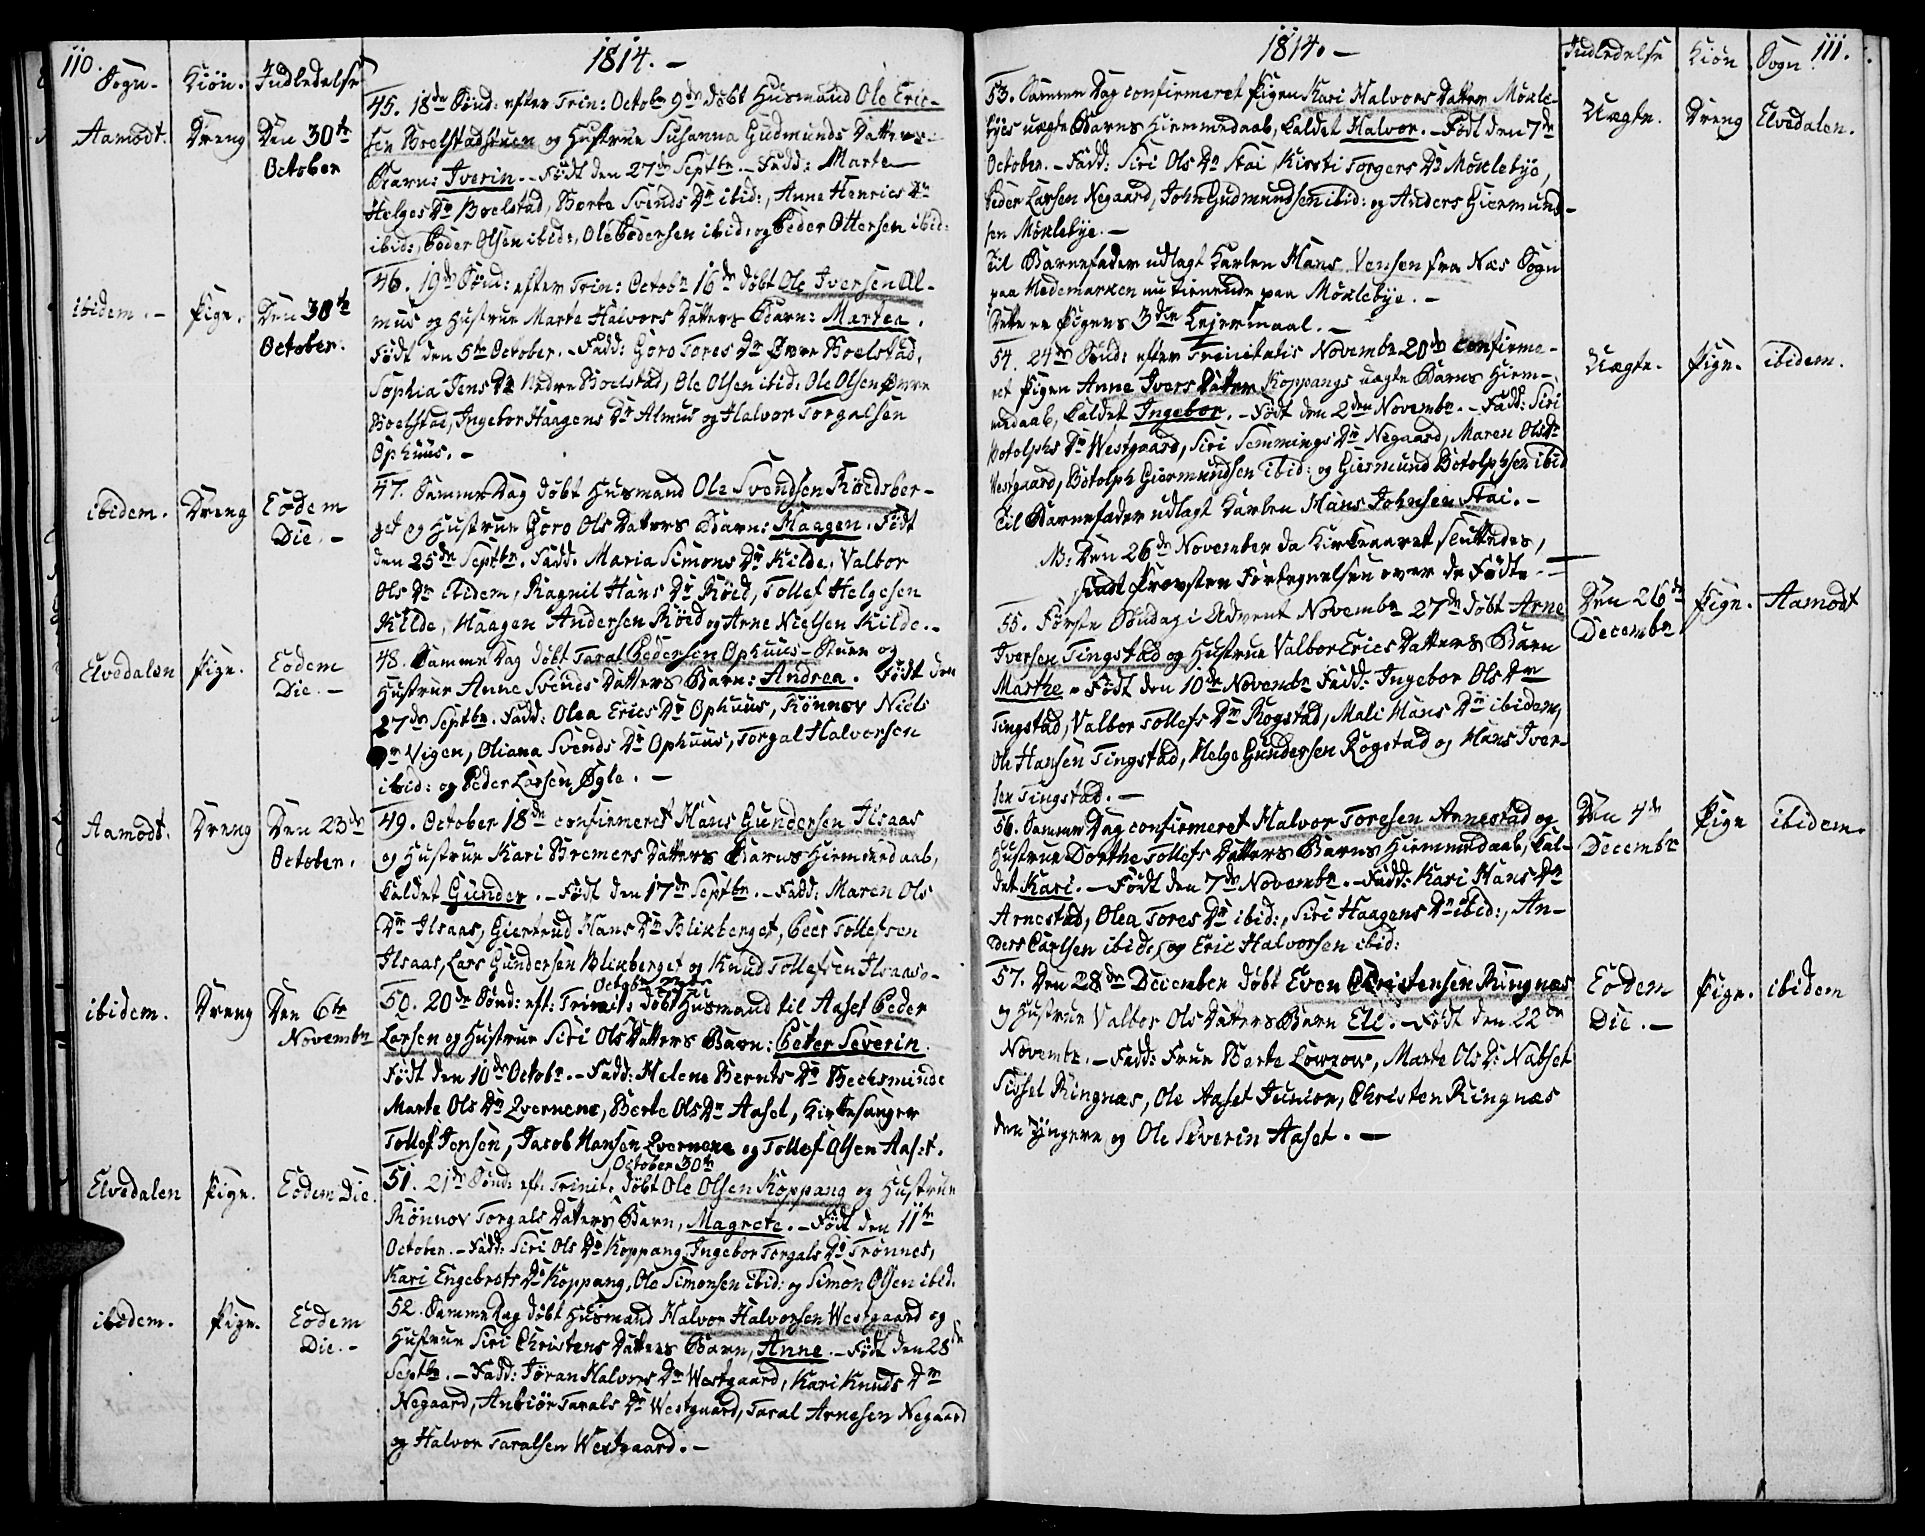 110.
Sogn.
Kiön.
Indledelse
1814. –
Aamodt.
Dreng
Den 30te
October
45. 18de Sönd: efter Trin: Octobr 9de döbt Husmand Ole Eric-
sen Boelstadstuen og Hustrue Susanna Gudmunds Datters
Barn: Iverin. – Födt den 27de Septbr. – Fadd: Marte
Helges Dr Boelstad, Berte Svends Dr ibid:, Anne Henrics Dr
ibid:, Peder Olsen ibid:, Ole Pedersen ibid: og Peder Ottersen ibid:
ibidem. –
Pige.
Den 30te
October.
46. 19de Sönd: efter Trin: Octobr 16de döbt Ole Iversen Al-
mus og Hustrue Marte Halvors Datters Barn: Martea.
Födt den 5te October. – Fadd: Goro Tores Dr Övre Boelstad,
Sophia Jens Dr Nedre Boelstad, Ole Olsen ibid: Ole Olsen Övre
Boelstad, Ingebor Haagens Dr Almus og Halvor Torgalsen
Ophuus. –
ibidem.
Dreng
Eodem
Die. –
47. Samme Dag döbt Husmand Ole Svendsen Röedsber-
get og Hustrue Goro Ols Datters Barn: Haagen. Födt
den 25de Septbr. Fadd: Maria Simons Dr Kilde, Valbor
Ols Dr ibidem, Ragnil Hans Dr Röed, Tollef Helgesen
Kilde, Haagen Andersen Röed og Arne Nielsen Kilde. –
Elvedalen
Pige.
Eodem
Die. –
48. Samme Dag döbt Taral Pedersen Ophuus-Stuen og
Hustrue Anne Svends Datters Barn: Andrea. Födt den
27de Septbr. Fadd: Olea Erics Dr Ophuus, Rönnov Niels
Dr Vigen, Oliana Svends Dr Ophuus, Torgal Halvorsen
ibid: og Peder Larsen Ögle. –
Aamodt.
Dreng
Den 23de
October.
49. October 18de confirmeret Hans Gundersen Ilsaas
og Hustrue Kari Bremers Datters Barns Hiemmedaab,
kaldet Gunder. – Födt den 17de Septbr. – Fadd: Maren Ols
Dr Ilsaas, Giertrud Hans Dr Blikberget, Peer Tollefsen
Ilsaas, Lars Gundersen Blikberget og Knud Tollefsen Ilsaas. –
ibidem.
Dreng
Den 6te
Novembr
Octobr 23de
50. 20de Sönd: eft: Trinit: döbt Husmand til Aaset Peder
Larsen og Hustrue Siri Ols Datters Barn: Peter Severin.
Födt den 10de Octobr. – Fadd: Helene Bernts Dr Bechsminde
Marte Ols Dr Qvernene, Berte Ols Dr Aaset, Kirkesanger
Tollef Jensen, Jacob Hansen Qvernene og Tollef Olsen Aaset.
Elvedalen
Pige.
Eodem Die.
October 30te
51. 21de Sönd: eft: Trinit: döbt Ole Olsen Koppang og Hustrue
Rönnov Torgals Datters Barn, Magrete. – Födt den 11te
October. – Fadd: Siri Ols Dr Koppang, Ingebor Torgals Dr Trönnes,
Kari Engebrets Dr Koppang, Ole Simonsen ibid: og Simon Olsen ibid.
ibidem.
Pige.
Eodem
Die. –
52. Samme Dag döbt Husmand Halvor Halvorsen Westgaard og
Hustrue Siri Christens Datters Barn, Anne. – Födt den 28de
Septbr. – Fadd: Jöran Halvors Dr Westgaard, Kari Knuds Dr
Negaard, Anbiör Tarals Dr Westgaard, Taral Arnesen Negaard
og Halvor Taralsen Westgaard. –
1814. –
Indledelse
Kiön
Sogn
111.
53. Samme Dag confirmeret Pigen Kari Halvors Datter Möxle-
byes uægte Barns Hiemmedaab, kaldet Halvor. – Födt den 7de
October. – Fadd: Siri Ols Dr Stai, Kirsti Torgers Dr Möxlebye,
Peder Larsen Negaard, John Gudmundsen ibid: og Anders Giermund-
sen Möxlebye. –
Til Barnefader udlagt Karlen Hans Jensen fra Næs Sogn
paa Hedemarken nu tienende paa Möxlebye. –
Dette er Pigens 3die Leiermaal. –
Uægte.
Dreng
Elvedalen.
54. 24de Sönd: efter Trinitatis Novembr 20de confirme-
ret Pigen Anne Ivers Datter Koppangs uægte Barns Hiem-
medaab, kaldet Ingebor. – Födt den 2den Novembr. – Fadd: Siri
Botolphs Dr Westgaard, Siri Semmings Dr Negaard, Maren Ols Dr
Westgaard, Botolph Giermundsen ibid: og Giermund Botolphsen ibid
Til Barnefader udlagt Karlen Hans Johnsen Stai. –
Uægte.
Pige.
ibidem.
NB: Den 26de November da Kirkeaaret sluttedes,
sendt Provsten Fortegnelsen over de Födte. –
55. Förste Söndag i Advent Novembr 27de döbt Arne
Iversen Tingstad og Hustrue Valbor Erics Datters Barn
Marthe. – Födt den 10de Novembr Fadd: Ingebor Ols Dr
Tingstad, Valbor Tollefs Dr Rogstad, Mali Hans Dr ibidem,
Ole Hansen Tingstad, Helge Gundersen Rogstad og Hans Iver-
sen Tingstad. –
Den 26de
Decembr
Pige.
Aamodt
56. Samme Dag confirmeret Halvor Toresen Arnestad og
Hustrue Dorthe Tollefs Datters Barns Hiemmedaab, kal-
det Kari. – Födt den 7de Novembr. – Fadd: Kari Hans Dr
Arnestad, Olea Tores Dr ibid:, Siri Haagens Dr ibid:, An-
ders Carlsen ibid: og Eric Halvorsen ibid:
Den 4de
Decembr
Pige
ibidem.
57. Den 28de December döbt Even Christensen Ringnæs
og Hustrue Valbor Ols Datters Barn Eli. – Födt den 22de
Novembr. – Fadd: Frue Berte Lowzow, Marte Ols Dr Nabset
Sissel Ringnæs, Ole Aaset Junior, Christen Ringnæs
den Yngere og Ole Severin Aaset. –
Eodem
Die. –
Pige.
ibidem